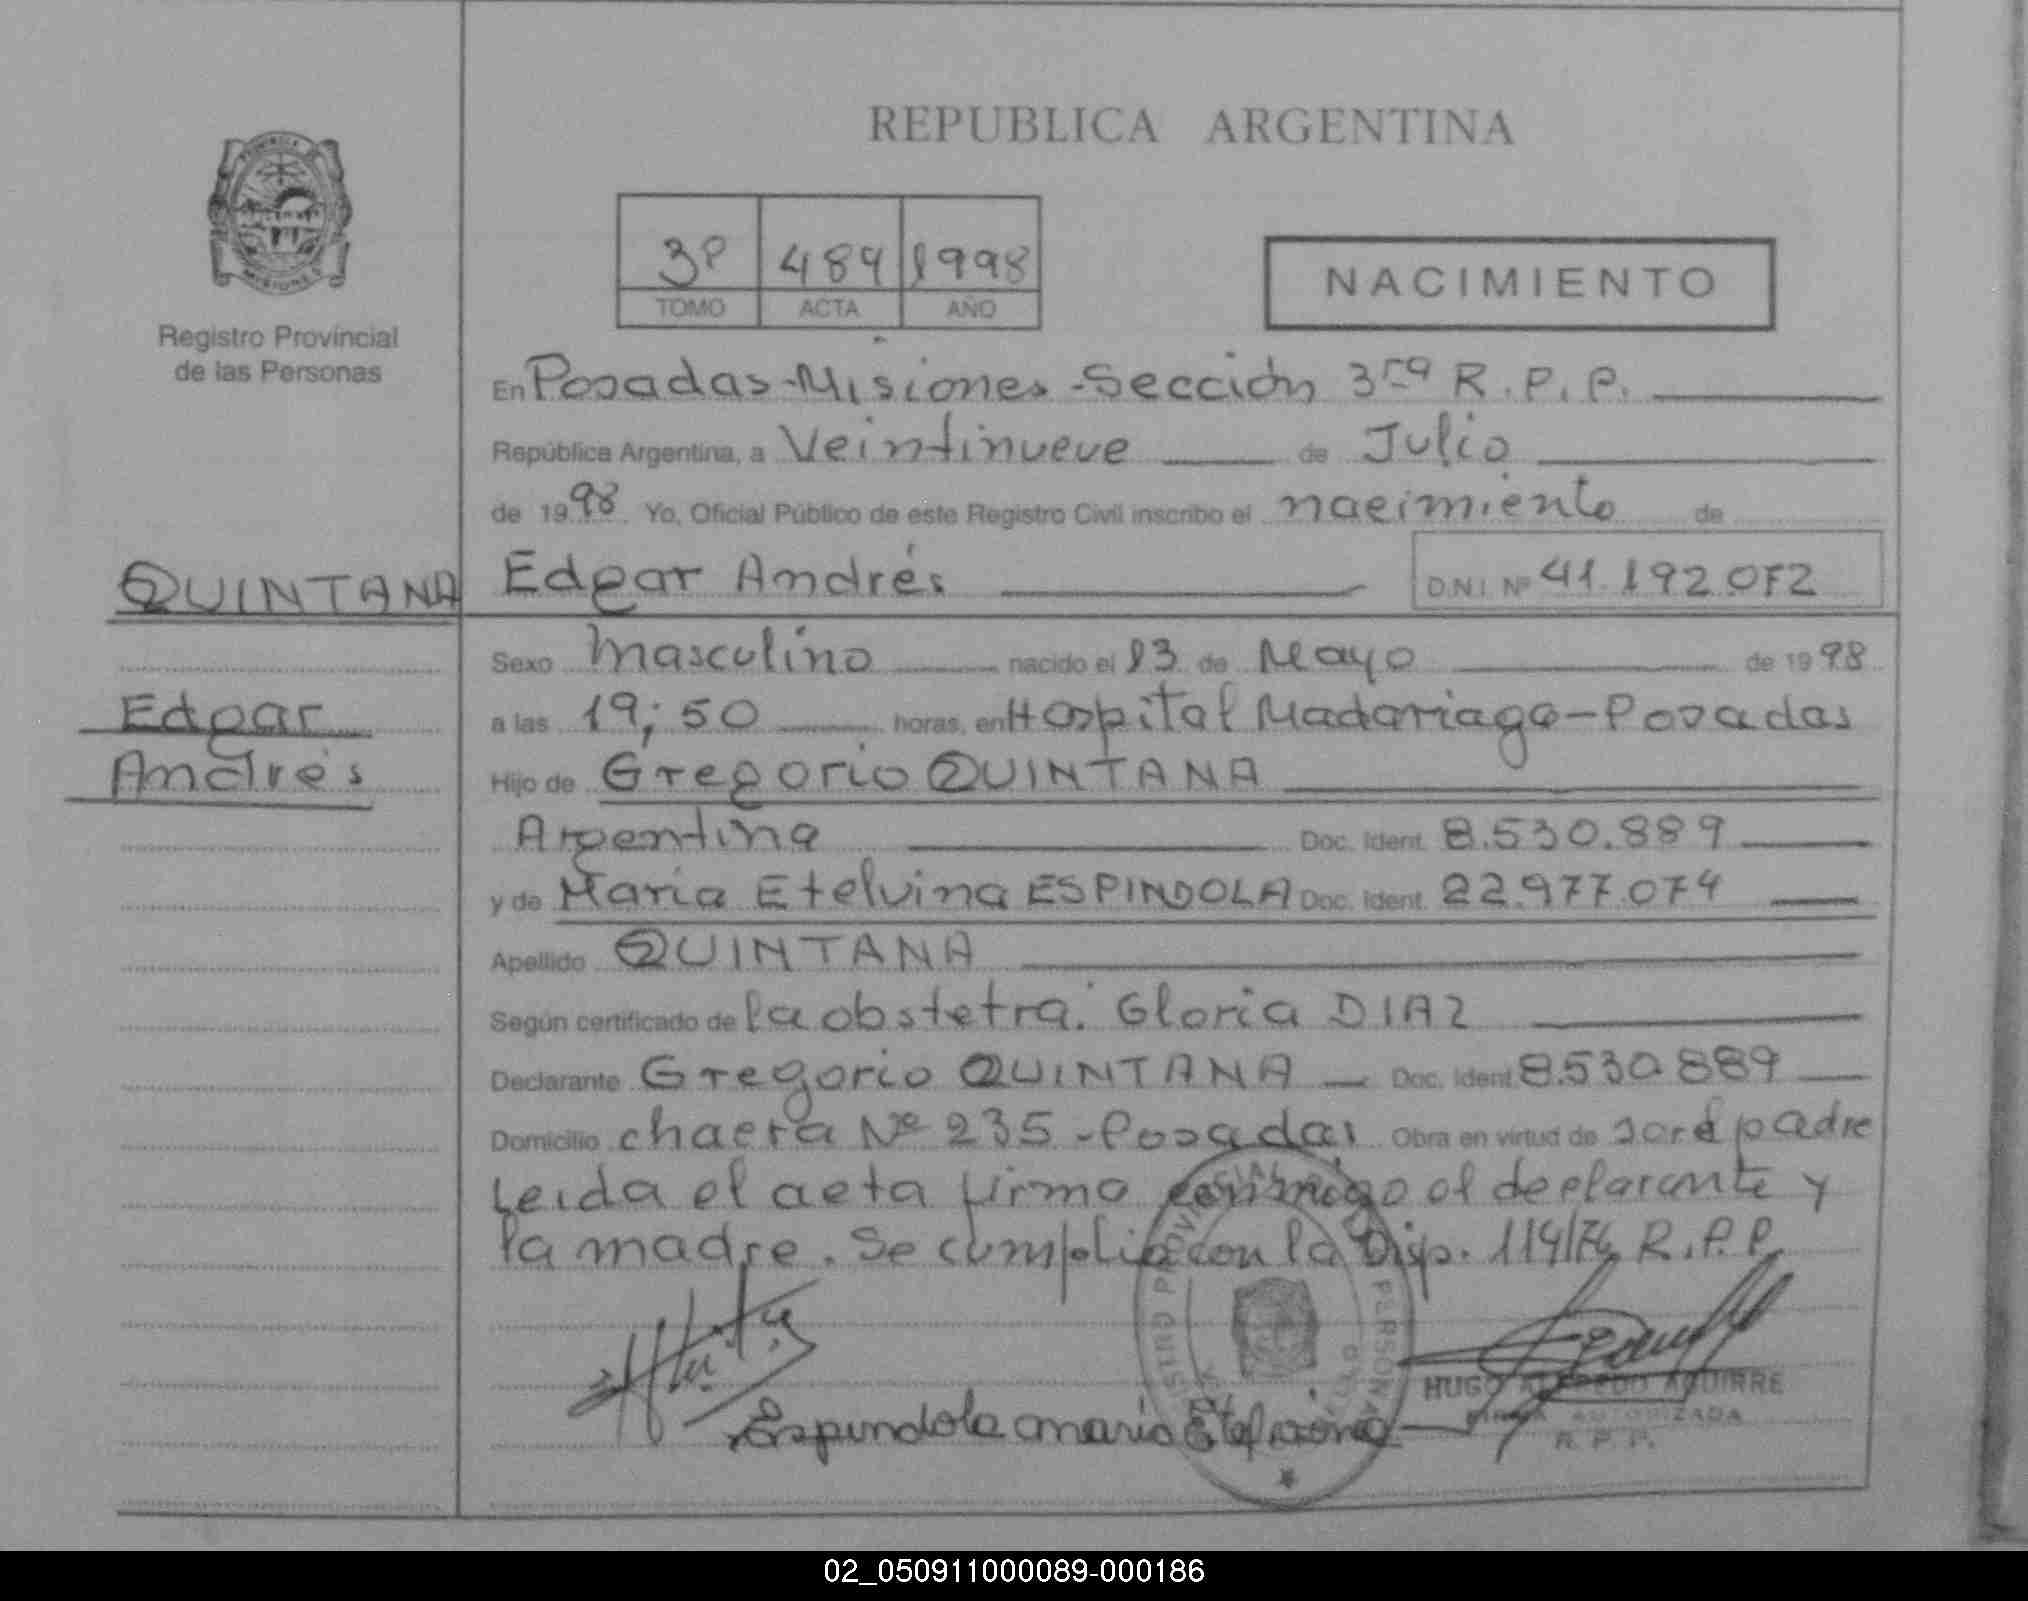 REPUBLICA ARGENTINA
3º 489 1998
TOMO ACTA AÑO
NACIMIENTO
Registro Provincial
de las Personas
En Posadas-Misiones-Sección 3ra R.P.P.
República Argentina, a Veintinueve de Julio
de 1998 Yo, Oficial Público de este Registro Civil inscribo el nacimiento de
QUINTANA Edgar Andrés D.N.I. Nº 41.192.072
Sexo Masculino nacido el 13 de Mayo de 1998
Edgar a las 19;50 horas, en Hospital Madariaga-Posadas
Andrés Hijo de Gregorio QUINTANA
Argentina Doc. Ident. 8.530.889
y de Maria Etelvina ESPINDOLA Doc. Ident. 22.977.074
Apellido QUINTANA
Según certificado de la obstetra: Gloria DIAZ
Declarante Gregorio QUINTANA Doc. Ident. 8.530.889
Domicilio chacra Nº 235-Posadas Obra en virtud de ser el padre
Leida el acta firma conmigo el declarante y
la madre. Se cumplió con la Disp. 114/74 R.P.P.
HUGO ALFREDO AGUIRRE
Espindola maria Etelvina
FIRMA AUTORIZADA
R. P. P.
02_050911000089-000186